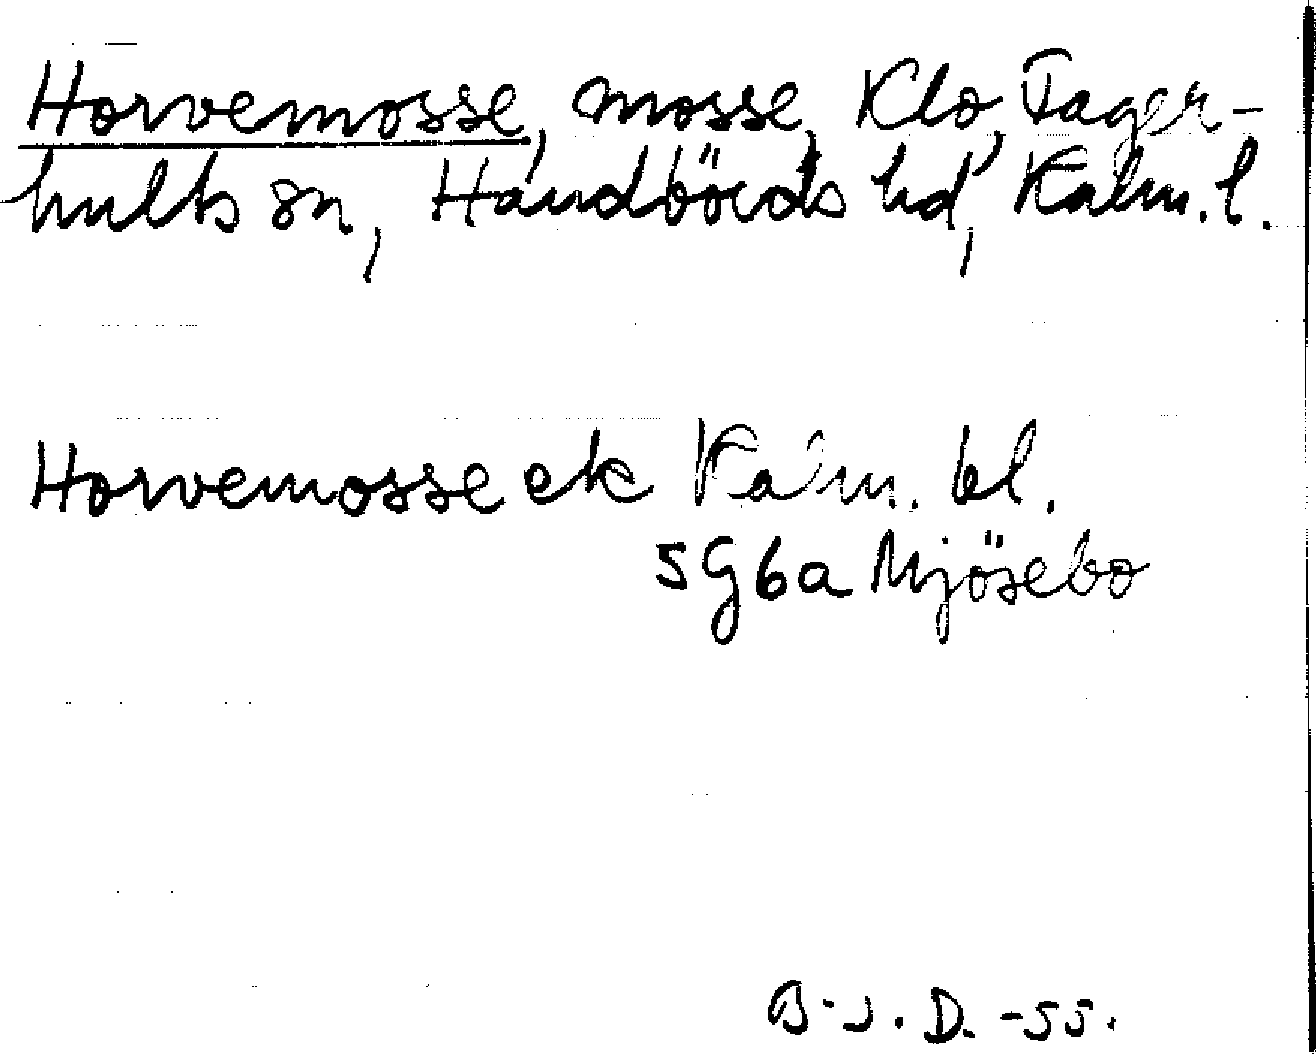 Horvemosse, mosse, Klo, Fager-
hults sn, Handbörds hd, Kalm. l.
Horvemosse ek Kalm. bl.
5G6a Mjösebo
B-J. D. -55.